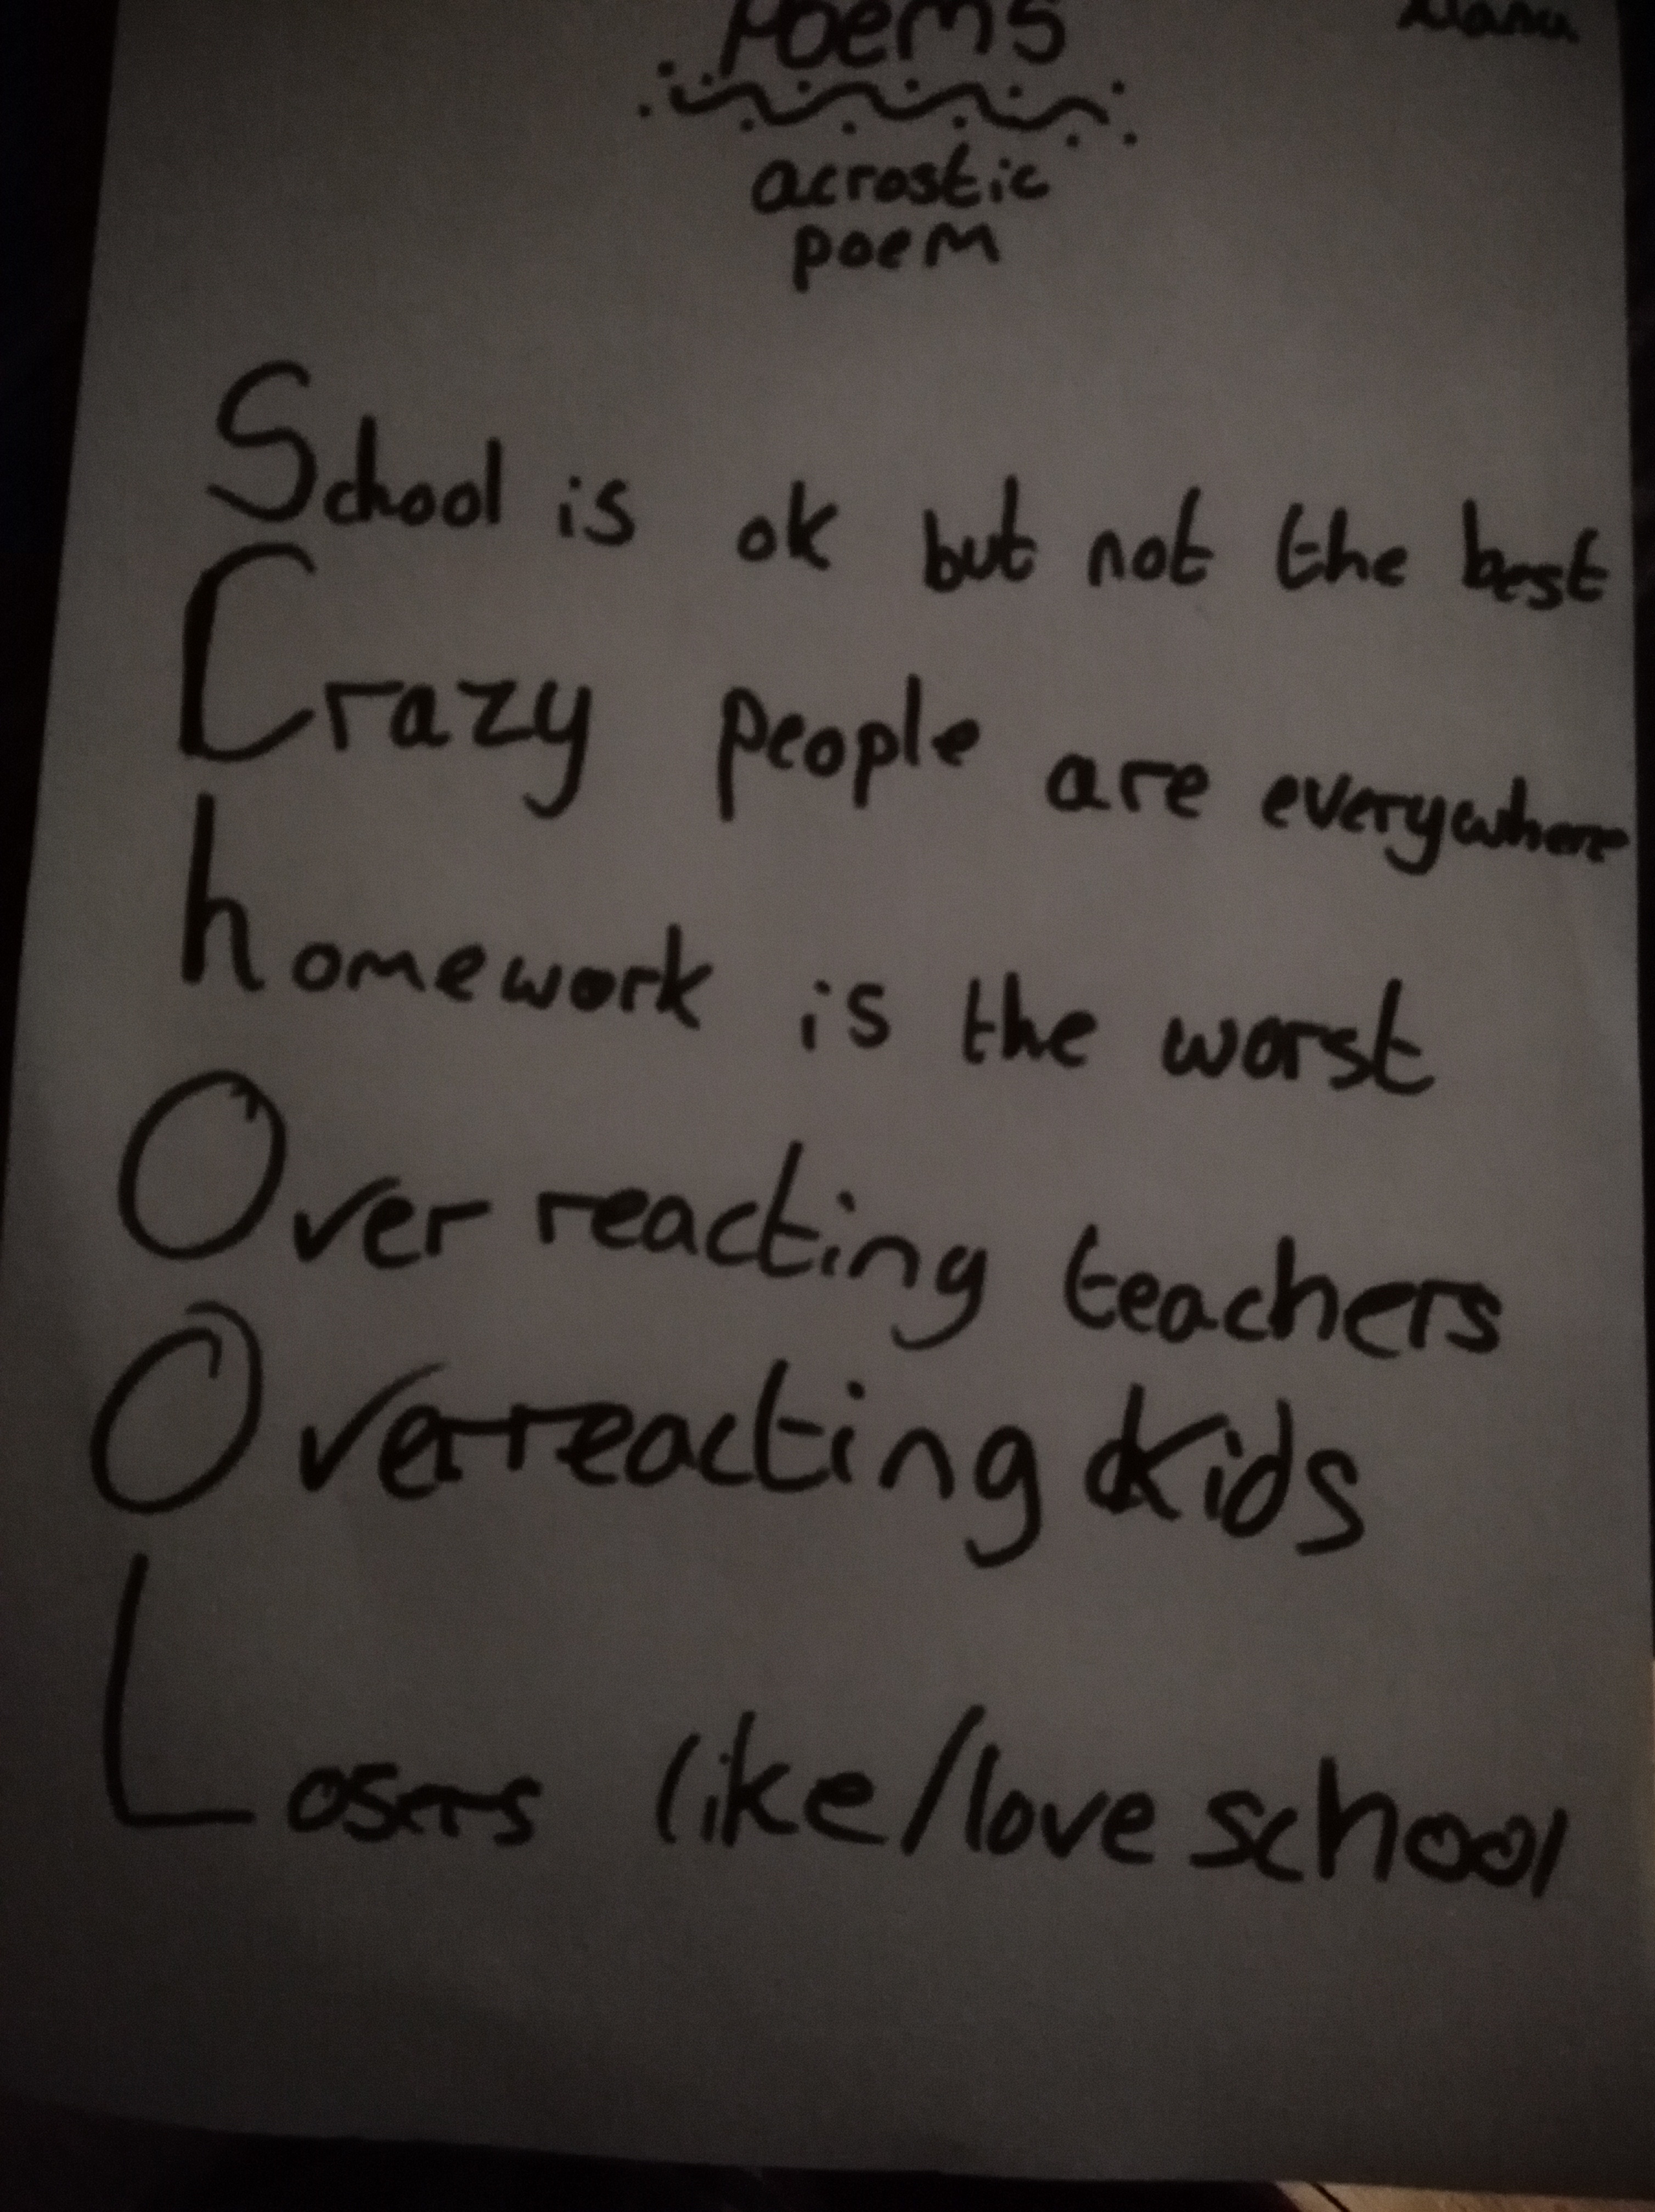 Poems
acrostic
poem
School is ok but not the best
Crazy people are everywhere
homework is the worst
Over reacting teachers
Overreacting kids
Losers like/love school